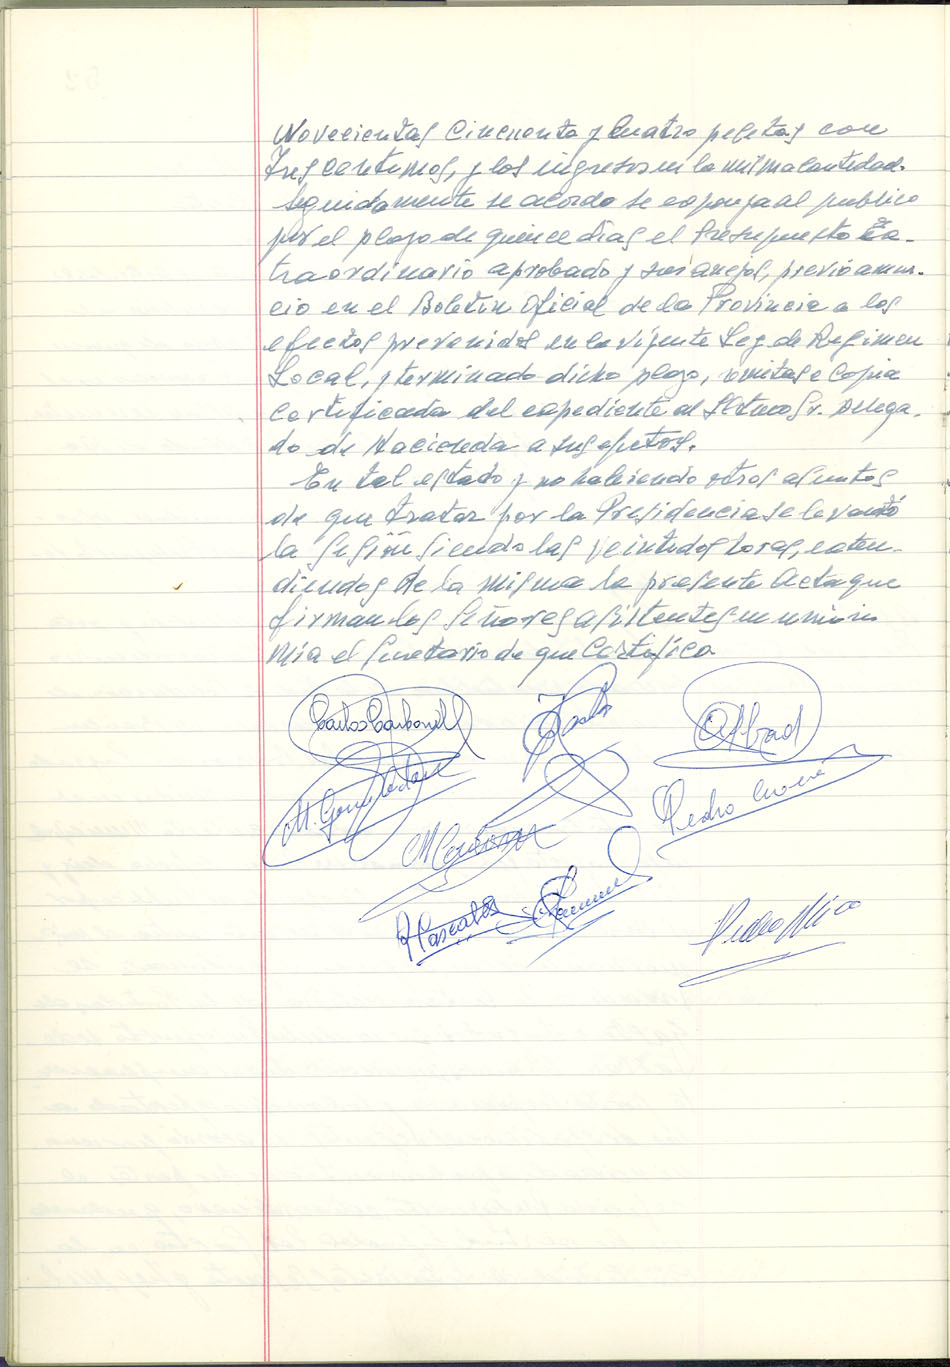 Novecientas Cincuenta y Cuatro pesetas con
tres centimos, y los ingresos en la misma cantidad.
Seguidamente se acordo se exponga al publico
por el plazo de quince dias el Presupuesto Ex-
traordinario aprobado y sus anejos, previo anun-
cio en el Boletin Oficial de la Provincia a los
efectos prevenidos en la vigente Ley de Regimen
Local, y terminado dicho plazo, remitase Copia
Certificada del expediente al Iltmo Sr. Delega-
do de Hacienda a sus efectos.
En tal estado y no habiendo otros asuntos
de que tratar por la Presidencia se levantó
la Sesión siendo las veintidos horas, exten-
diendos de la misma la presente Acta que
firman los Señores asistentes en union
mia el Secretario de que Certifico
Carlos Carbonell
M. Gonzalez
Pedro
Pedro Mico